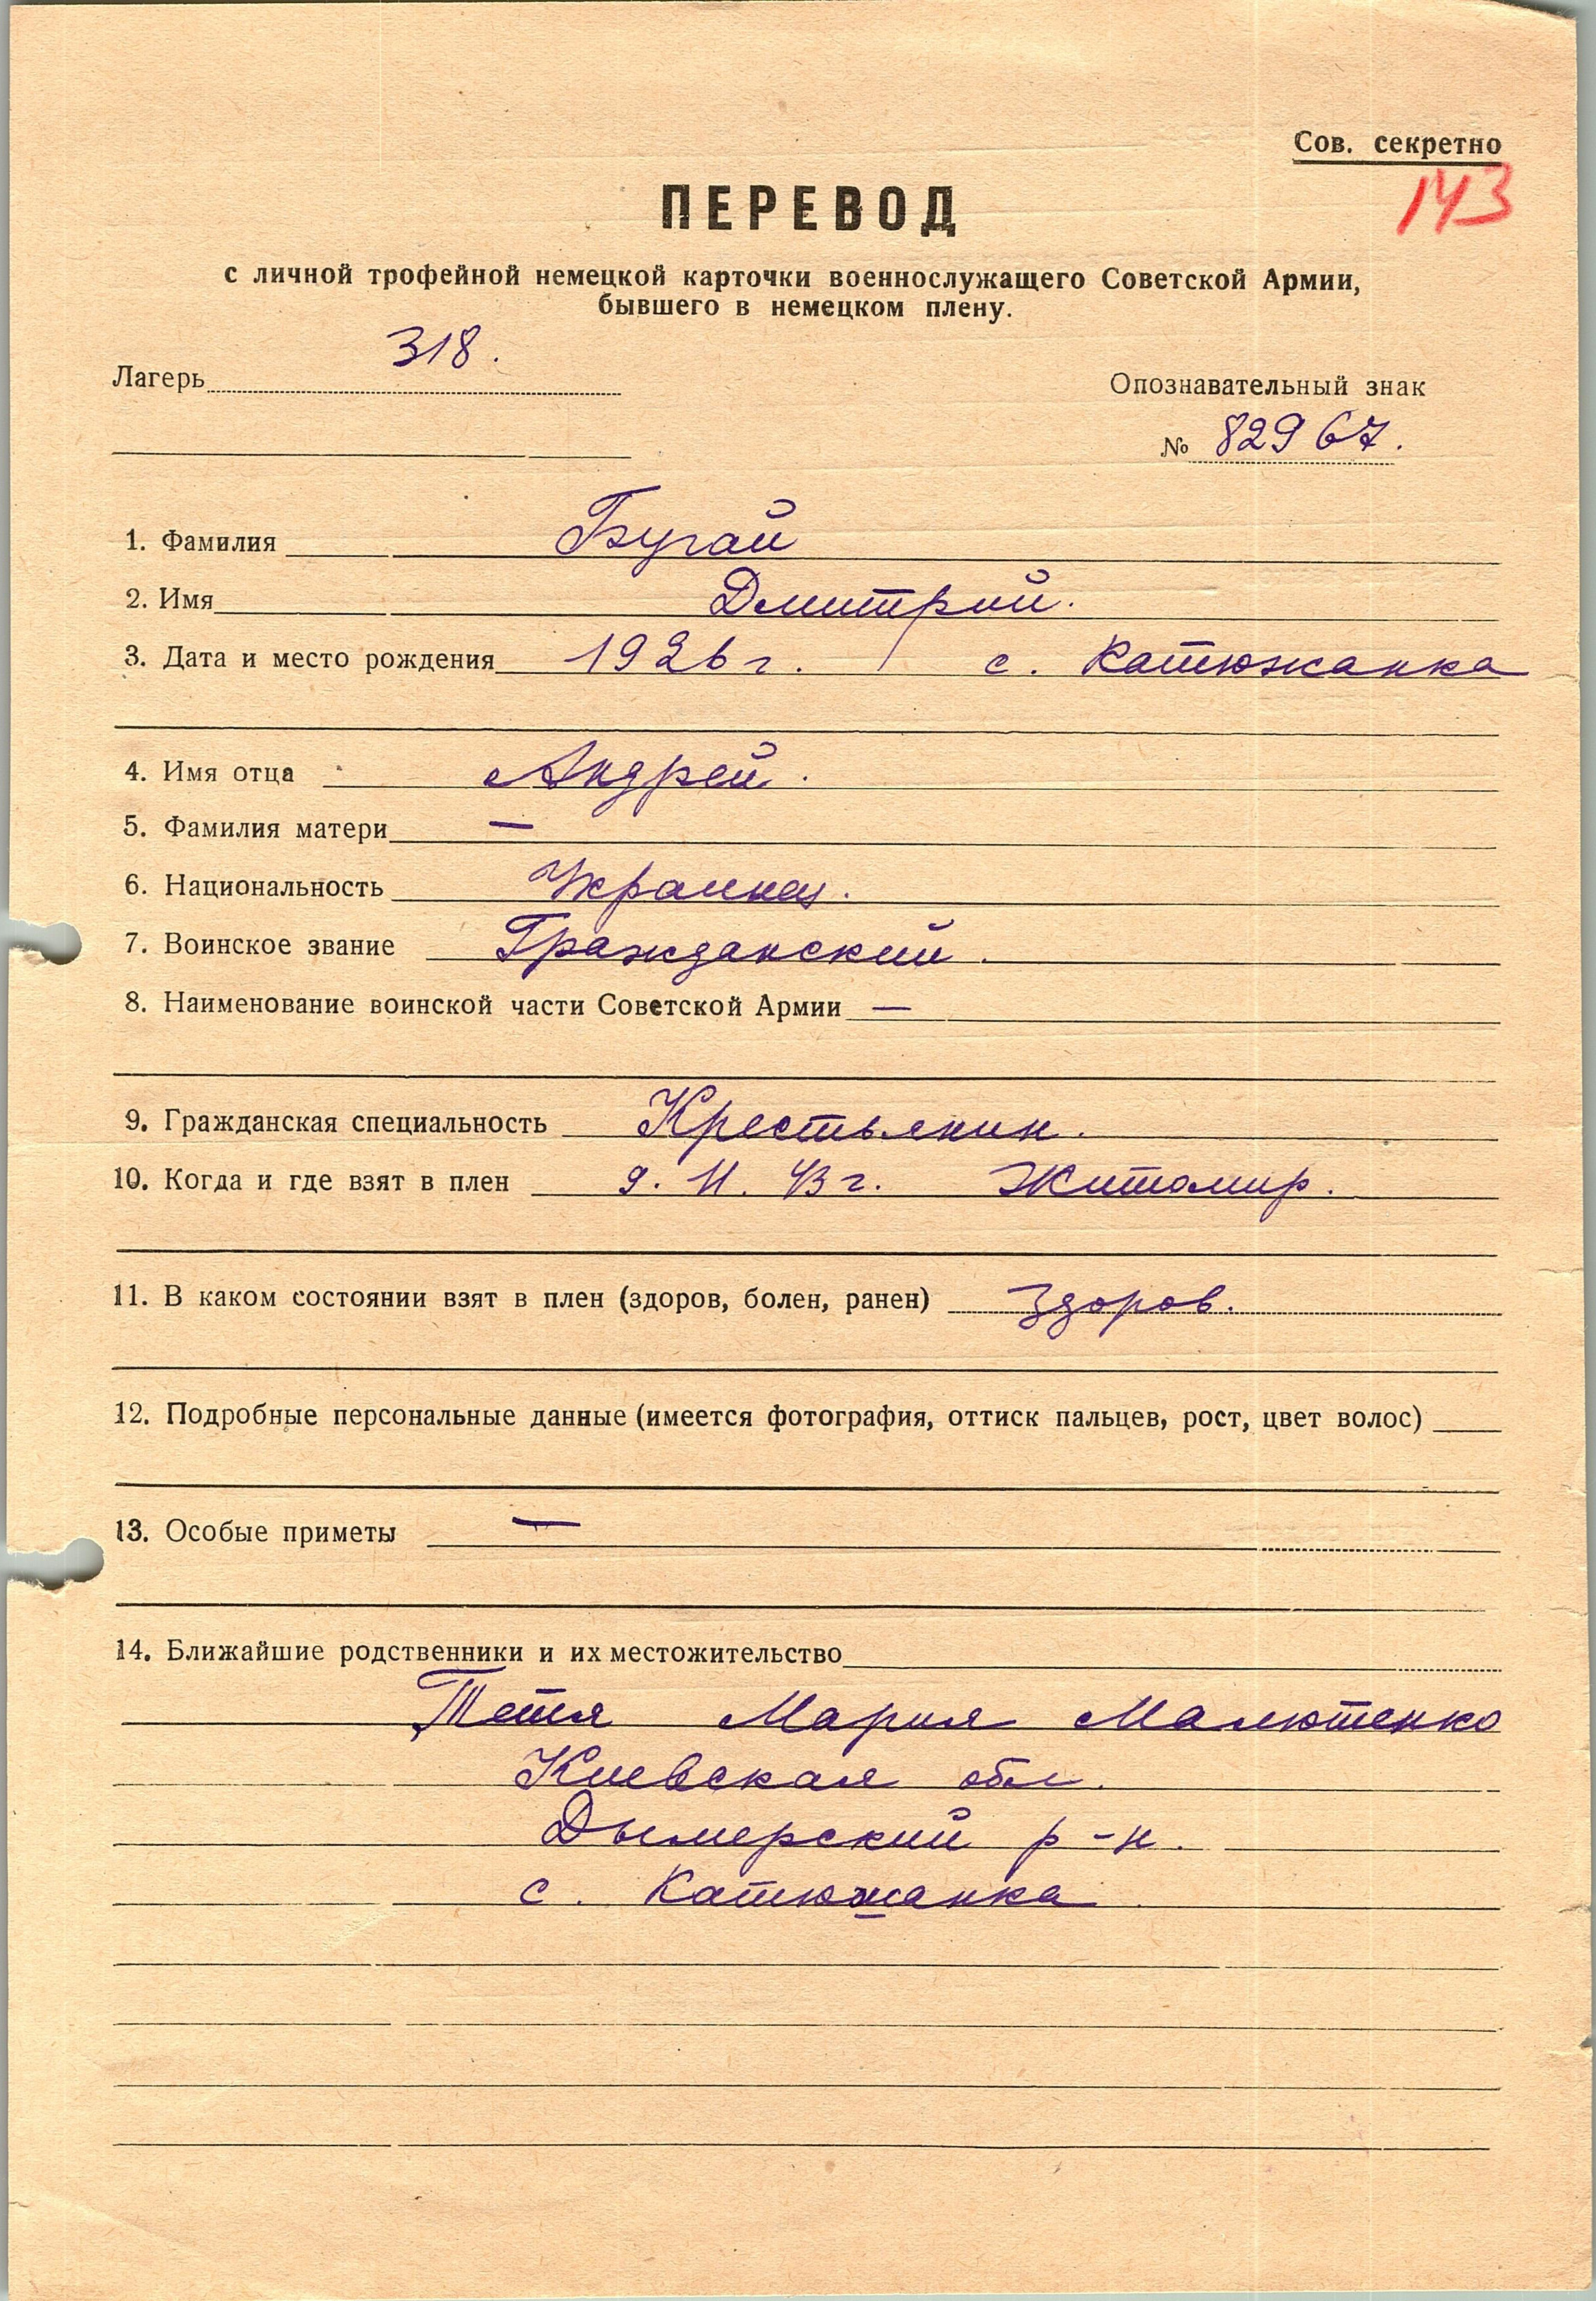 Сов. секретно
143
ПЕРЕВОД
с личной трофейной немецкой карточки военнослужащего Советской Армии,
бывшего в немецком плену.
Лагерь 318.
Опознавательный знак
№ 82967.
1. Фамилия Бугай
2. Имя Дмитрий.
3. Дата и место рождения 1926 г. с. Катюжанка
4. Имя отца Андрей.
5. Фамилия матери —
6. Национальность Украинец.
7. Воинское звание Гражданский.
8. Наименование воинской части Советской Армии —
9. Гражданская специальность Крестьянин.
10. Когда и где взят в плен 9. 11. 43 г. Житомир.
11. В каком состоянии взят в плен (здоров, болен, ранен) Здоров.
12. Подробные персональные данные (имеется фотография, оттиск пальцев, рост, цвет волос)
13. Особые приметы —
14. Ближайшие родственники и их местожительство
Тетя Мария Малютенко
Киевская обл.
Дымерский р-н.
с. Катюжанка